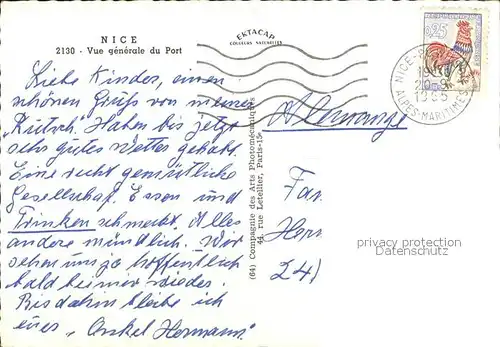 NICE
2130 - Vue générale du Port
EKTACAP
COULEURS NATURELLES
0,25
NICE
19
20-9
1965
ALPES-MARITIMES
Liebe Kinder, einen
schönen Gruß von meiner
„Rutsch". Haben bis jetzt
sehr gutes Wetter gehabt.
Eine recht gemütliche
Gesellschaft. Essen und
Trinken schmeckt. Alles
andere mündlich. Wir
sehen uns ja hoffentlich
bald heimer wieder.
Bis dahin bleibe ich
euer „Onkel Hermann".
(64) Compagnie des Arts Photomécaniques
44, rue Letellier, Paris-15e
Allemagne
Fa.
Herr
241
privacy protection
Datenschutz